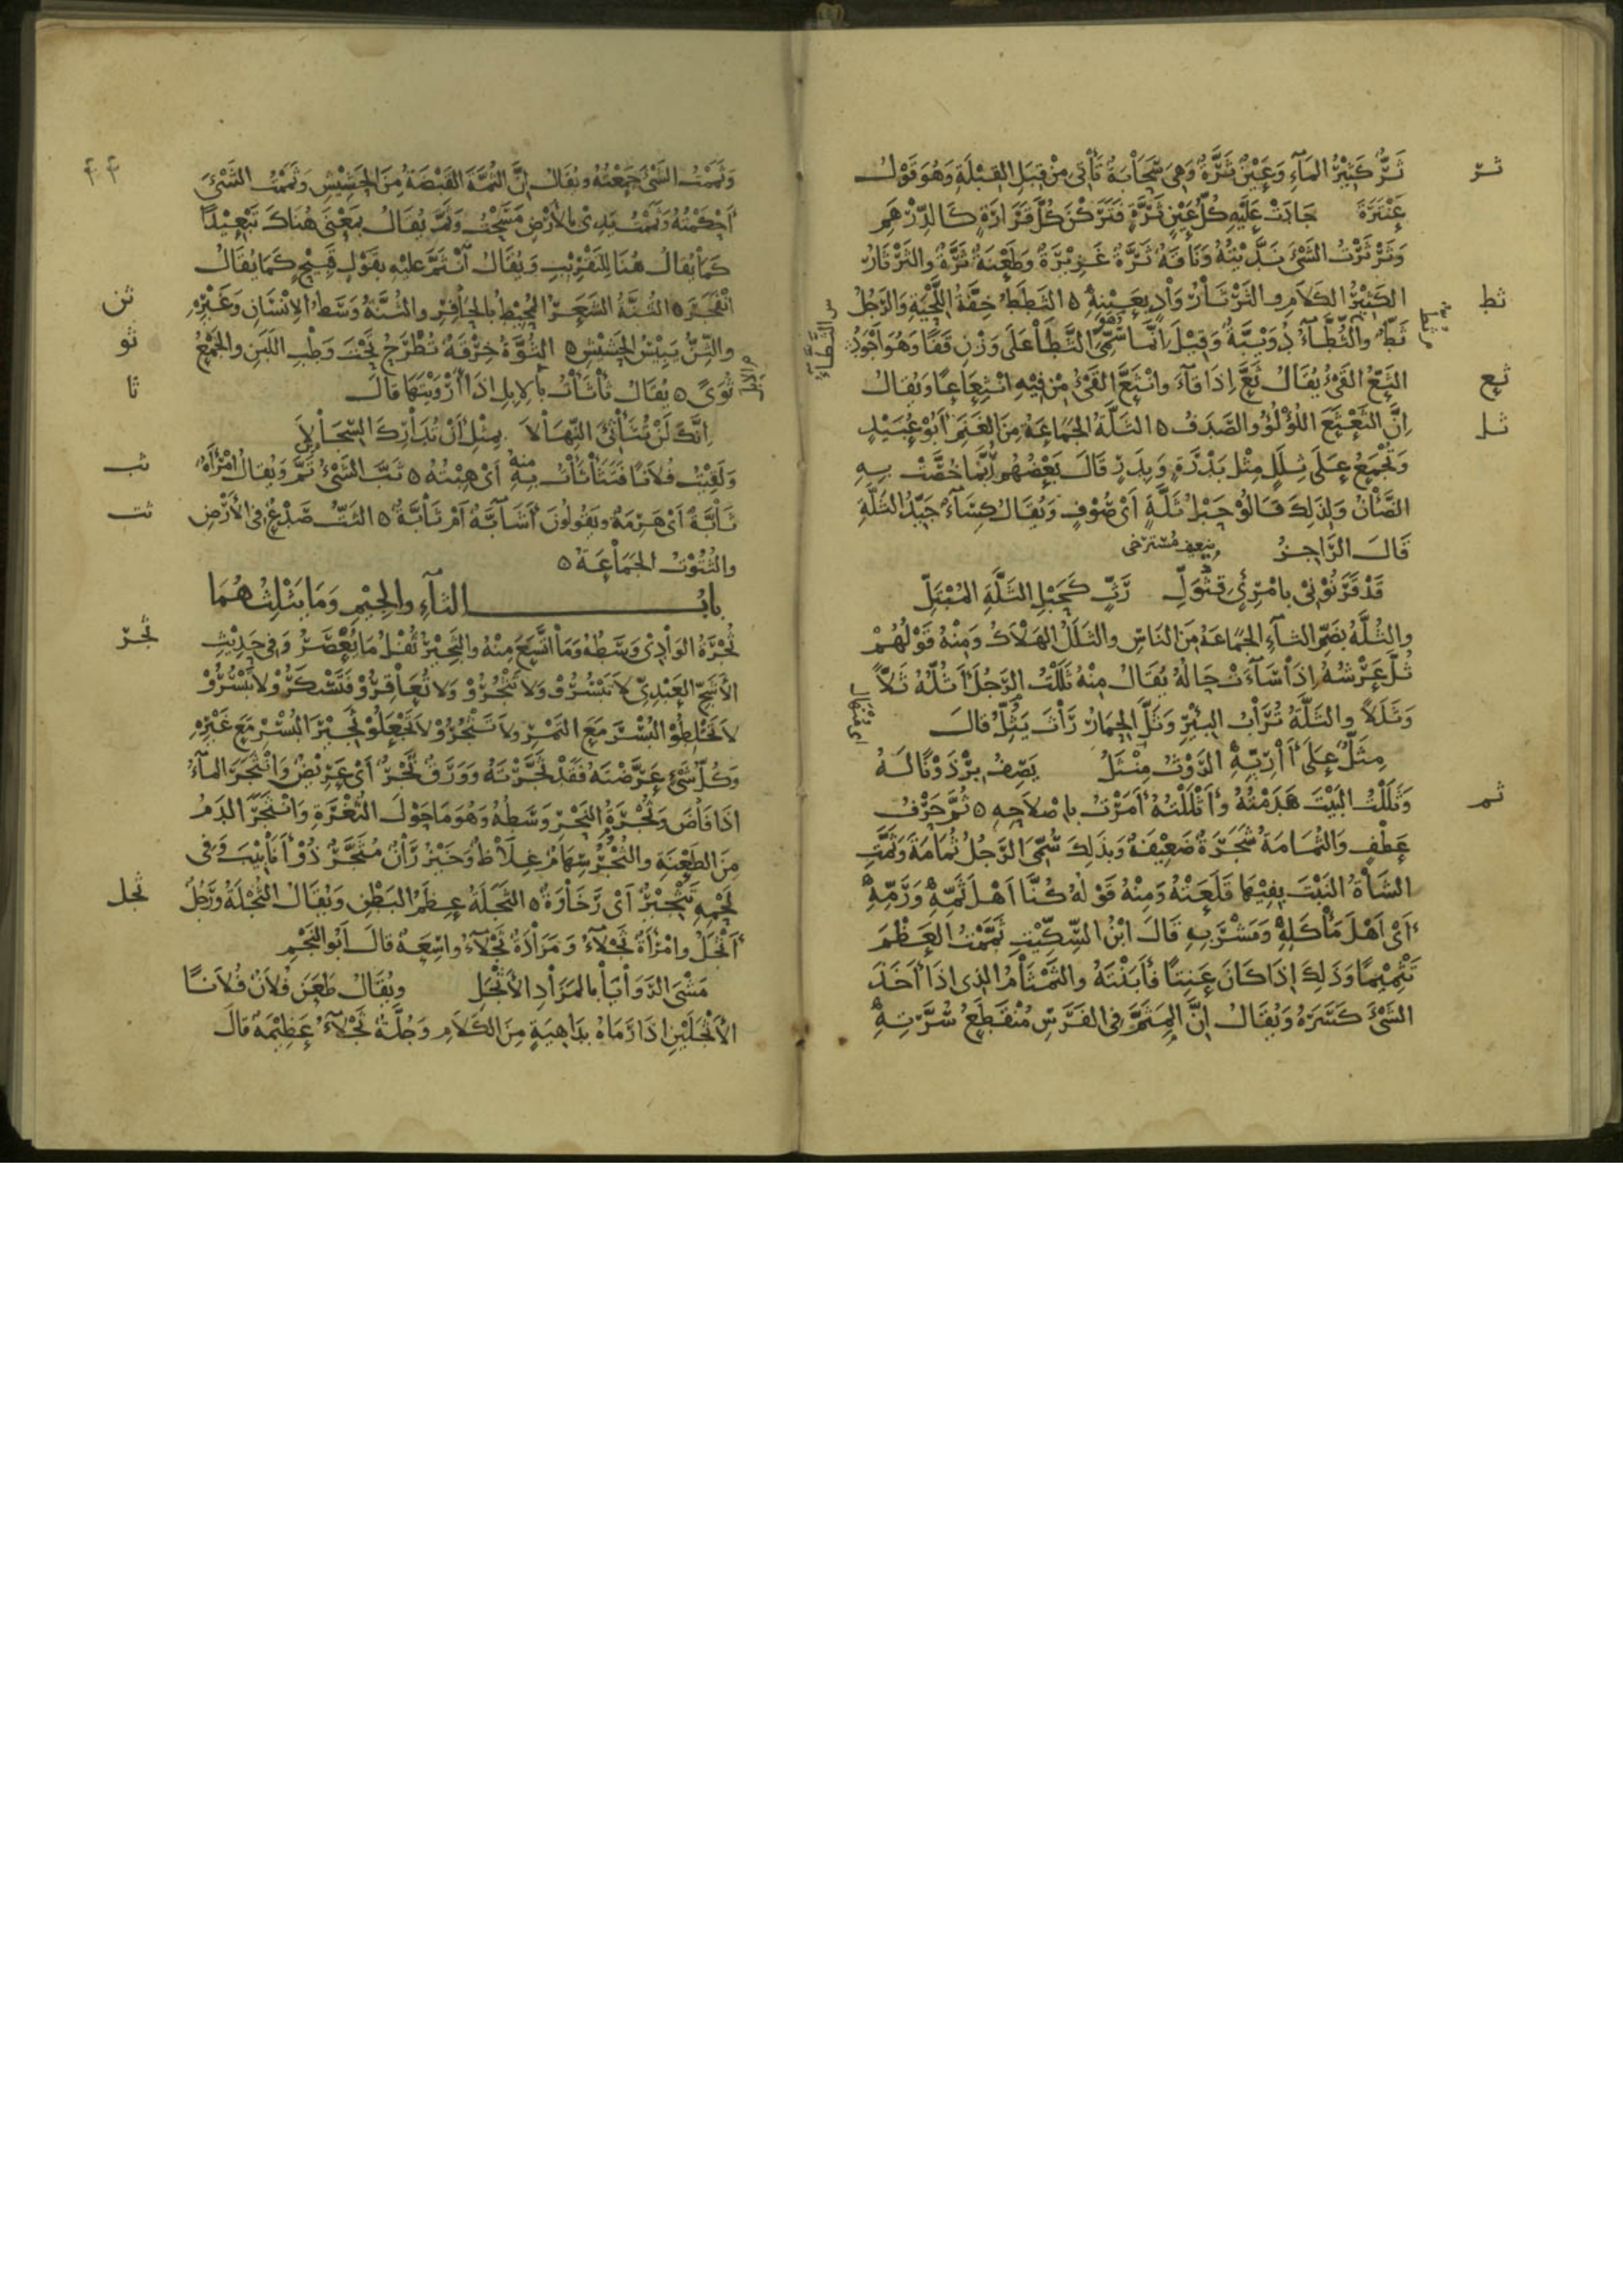 ثر
ثَرٌّ كَثِيْرُ المَآءِ وَعَيْنٌ ثَرَّةٌ وَهِىَ سَحَابَةٌ تَأْتِى مِنْ قِبَلِ القِبْلَةِ وَهُوَ قَوْلُ
عَنْتَرَةَ جَادَتْ عَلَيْهِ كُلُّ عَيْنٍ ثَرَّةٍ فَتَرَكْنَ كُلَّ قَرَارَةٍ كَالدِّرْهَمِ
وَثَرْثَرْتُ الشَّىْءَ نَدَّيْتُهُ وَنَاقَةٌ ثَرَّةٌ غَزِيْرَةٌ وَطَعْنَةٌ ثَرَّةٌ وَالثَرْثَارُ
ثط
الكَثِيْرُ الكَلَامِ وَالثَرْثَارُ وَادٍ بِعَيْنِهِ ٥ الثَطَطُ خِفَّةُ اللِّحْيَةِ وَالرَجُلُ
ثَطٌّ وَالثُّطَّآءُ دُوَيْبَّةٌ وَقِيْلَ اِنَّمَا هُوَ الثَّطَأ عَلَى وَزْنِ قَفًا وَهُوَ أَجْوَدُ
ثع
الثَعُّ القَىْءُ يُقَالُ ثَعَّ اِذَا قَآءَ وَانْثَعَّ القَىْءُ مِنْ فِيْهِ انْثِعَاعًا وَيُقَالُ
ثل
اِنَّ الثَعْثَعَ اللُؤْلُؤُ وَالصَّدَفُ ٥ الثَلَّةُ الجَمَاعَةُ مِنَ الغَنَمِ أَبُوْ عُبَيْدٍ
وَتُجْمَعُ عَلَى ثِلَلٍ مِثْلَ بَدْرَةٍ وَبِدَرٍ قَالَ بَعْضُهُمْ اِنَّمَا خُصَّتْ بِهِ
الضَّأْنُ وَلِذَلِكَ قَالُوْ حَبْلُ ثَلَّةٍ أَىْ صُوْفٍ وَيُقَالُ كِسَآءٌ جَيِّدُ الثَلَّةِ
قَالَ الرَّاجِزُ
قَدْ قَرَنُوْنِىْ بِامْرِئٍ قِثْوَلِّ رَثٍّ كَحَبْلِ الثَلَّةِ المُبْتَلِّ
وَالثُلَّةُ بِضَمِّ الثَآءِ الجَمَاعَةُ مِنَ النَاسِ وَالثَلَلُ الهَلَاكُ وَمِنْهُ قَوْلُهُمْ
ثُلَّ عَرْشُهُ اِذَا سَآءَتْ حَالُهُ يُقَالُ مِنْهُ ثَلَلْتُ الرَجُلَ أَثُلُّهُ ثَلًّا
وَثَلَلًا وَالثَلَّةُ تُرَابُ البِئْرِ وَثَلَّ الحِمَارُ رَاثَ يَثُلُّ قَالَ
مِثَلٌّ عَلَى آرِيِّهِ الرَوْثُ مِنْثَلُّ يَصِفُ بِرْذَوْنًا لَهُ
ثم
وَثَلَلْتُ البَيْتَ هَدَمْتُهُ وَأَثْلَلْتُهُ أَمَرْتُ بِاصْلَاحِهِ ٥ ثُمَّ حَرْفُ
عَطْفٍ وَالثُمَامَةُ شَجَرَةٌ ضَعِيْفَةٌ وَبِذَلِكَ سُمِّىَ الرَجُلُ ثُمَامَةَ وَثَمَّتِ
الشَاةُ النَبْتَ بِفِيْهَا قَلَعَتْهُ وَمِنْهُ قَوْلُهُ كُنَّا أَهْلَ ثَمِّهِ وَرَمِّهِ
أَىْ أَهْلَ مَأْكَلِهِ وَمَشْرَبِهِ قَالَ ابْنُ السِّكِّيْتِ ثَمَّمْتُ العَظْمَ
تَثْمِيْمًا وَذَلِكَ اِذَا كَانَ عَنِتًا فَأَبَنْتَهُ وَالثَمْثَامُ الذِى اِذَا أَخَذَ
الشَىْءَ كَسَرَهُ وَيُقَالُ اِنَّ المِثَمَّ فِى الفَرَسِ مُنْقَطِعُ سُرَّتِهِ
٤٤
وَثَمَمْتُ الشَىْءَ جَمَعْتُهُ وَيُقَالُ اِنَّ الثُمَّةَ القَبْضَةُ مِنَ الحَشِيْشِ وَثَمَمْتُ الشَىْءَ
أَحْكَمْتُهُ وَثَمَمْتُ يَدِىْ بِالأَرْضِ مَسَحْتُ وَثَمَّ يُقَالُ بِمَعْنَى هُنَاكَ تَبْعِيْدًا
كَمَا يُقَالُ هُنَا لِلتَقْرِيْبِ وَيُقَالُ انْثَمَّ عَلَيْهِ بِقَوْلٍ قَبِيْحٍ كَمَا يُقَالُ
ثن
انْفَجَرَ ٥ الثُنَّةُ الشَعَرُ المُحِيْطُ بِالحَافِرِ وَالثُنَّةُ وَسَطُ الاِنْسَانِ وَغَيْرِهِ
ثو
وَالثِنُّ يَبِيْسُ الحَشِيْشِ ٥ الثُوَّةُ خِرْقَةٌ تُطْرَحُ تَحْتَ وَطْبِ اللَبَنِ وَالجَمْعُ
ثا
ثُوًى ٥ يُقَالُ ثَأْثَأْتُ بِالاِبِلِ اِذَا أَرْوَيْتَهَا قَالَ
اِنَّكَ لَنْ تُثَأْثِئَ النِّهَالَا بِمِثْلِ أَنْ تُدَارِكَ السِّجَالَا
ثب
وَلَقِيْتُ فُلَانًا فَتَثَأْثَأْتُ مِنْهُ أَىْ هِبْتُهُ ٥ ثَبَّ الشَىْءُ تَمَّ وَيُقَالُ امْرَأَةٌ
ثت
ثَابَّةٌ أَىْ هَرِمَةٌ وَيَقُولُونَ أَشَابَّةٌ أَمْ ثَابَّةٌ ٥ الثَتُّ صَدْعٌ فِى الأَرْضِ
وَالثُتُوْتُ الجَمَاعَةُ ٥
بَابُ الثَآءِ وَالجِيْمِ وَمَا يَثْلِثُهُمَا
ثجر
ثُجْرَةُ الوَادِىْ وَسَطُهُ وَمَا اتَّسَعَ مِنْهُ وَالثَجِيْرُ ثُفْلُ مَا يُعْصَرُ وَفِى حَدِيْثِ
الأَشَجِّ العَبْدِىِّ لَا تَبْسُرُوْ وَلَا تَثْجُرُوْ وَلَا تُعَاقِرُوْ فَتَسْكَرُوْ لَا تَبْسُرُوْ
لَا تَخْلِطُوْ البُسْرَ مَعَ التَمْرِ وَلَا تَثْجُرُوْ لَا تَجْعَلُوْ ثَجِيْرَ البُسْرِ مَعَ غَيْرِهِ
وَكُلُّ شَىْءٍ عَرَّضْتَهُ فَقَدْ ثَجَّرْتَهُ وَوَرَقٌ ثَجْرٌ أَىْ عَرِيْضٌ وَانْثَجَرَ المَآءُ
اِذَا فَاضَ وَثُجْرَةُ النَحْرِ وَسَطُهُ وَهُوَ مَا حَوْلَ الثُغْرَةِ وَانْثَجَرَ الدَمُ
مِنَ الطَعْنَةِ وَالثُجْرُ سِهَامٌ غِلَاظٌ وَخَيْزُرَانٌ مُثَجَّرٌ ذُوْ أَنَابِيْبَ وَفِى
ثجل
لَحْمِهِ تَثْجِيْرٌ أَىْ رَخَاوَةٌ ٥ الثُجْلَةُ عِظَمُ البَطْنِ وَيُقَالُ الثُجْلَةُ وَرَجُلٌ
أَثْجَلُ وَامْرَأَةٌ ثَجْلَآءُ وَمَزَادَةٌ ثَجْلَآءُ وَاسِعَةٌ قَالَ أَبُو النَجْمِ
مَشْىَ الرَوَايَا بِالمَزَادِ الأَثْجَلِ وَيُقَالُ طَعَنَ فُلَانٌ فُلَانًا
الأَثْجَلَيْنِ اِذَا رَمَاهُ بِدَاهِيَةٍ مِنَ الكَلَامِ وَجُلَّةٌ ثَجْلَآءُ عَظِيْمَةٌ قَالَ